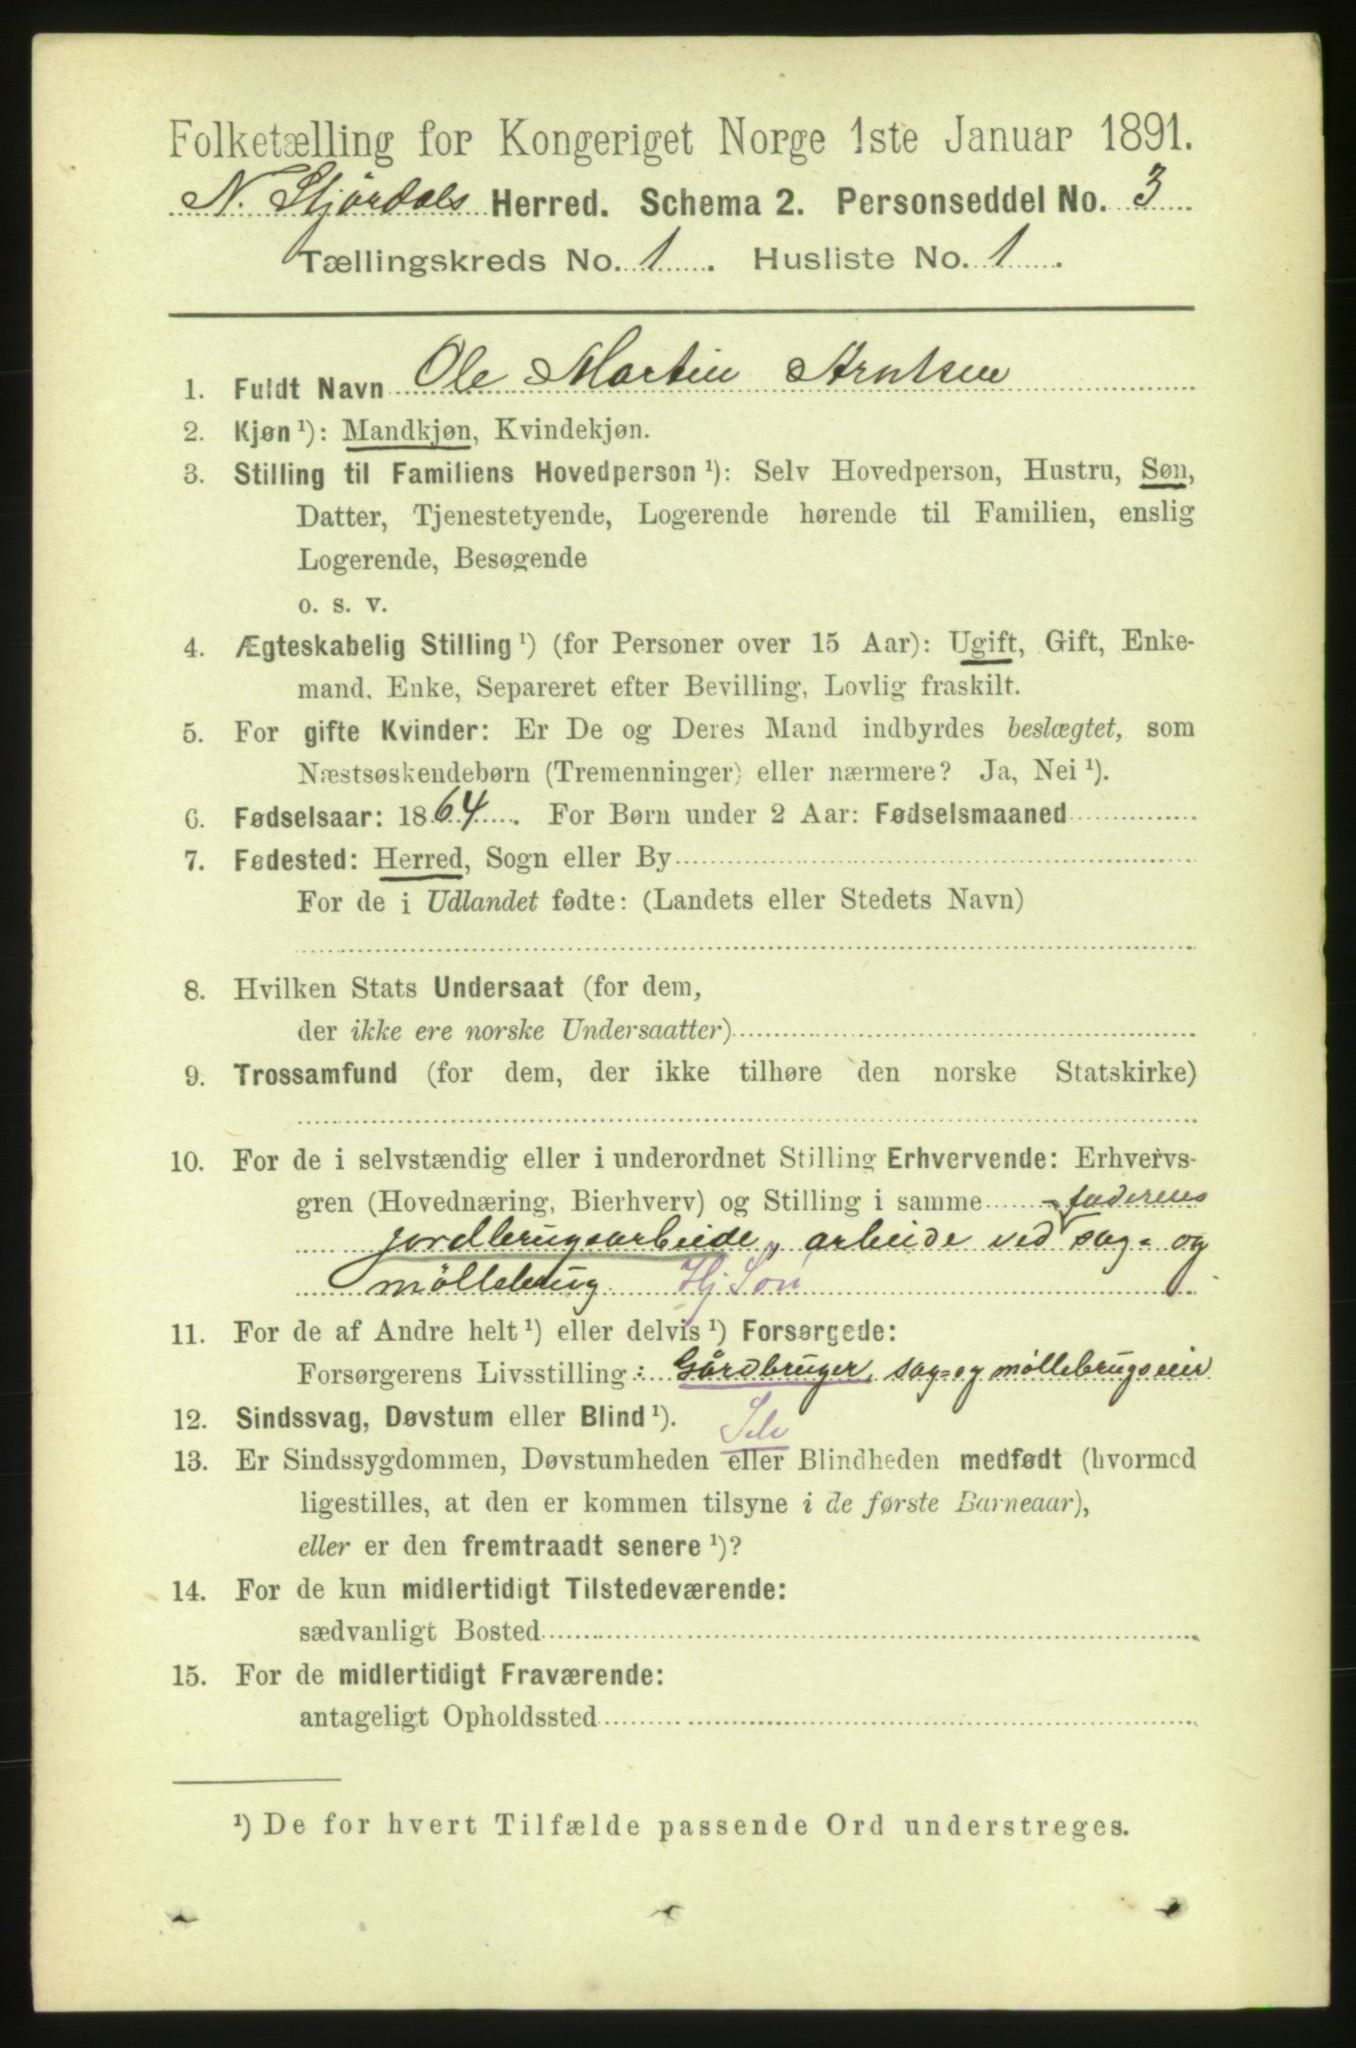 Folketælling for Kongeriget Norge 1ste Januar 1891.
N. Stjørdals Herred. Schema 2. Personseddel No. 3
Tællingskreds No. 1. Husliste No. 1.
1. Fuldt Navn Ole Martin Arntsen
2. Kjøn ¹): Mandkjøn, Kvindekjøn.
3. Stilling til Familiens Hovedperson ¹): Selv Hovedperson, Hustru, Søn,
Datter, Tjenestetyende, Logerende hørende til Familien, enslig
Logerende, Besøgende
o. s. v.
4. Ægteskabelig Stilling ¹) (for Personer over 15 Aar): Ugift, Gift, Enke-
mand, Enke, Separeret efter Bevilling, Lovlig fraskilt.
5. For gifte Kvinder: Er De og Deres Mand indbyrdes beslægtet, som
Næstsøskendebørn (Tremenninger) eller nærmere? Ja, Nei ¹).
6. Fødselsaar: 1864. For Børn under 2 Aar: Fødselsmaaned
7. Fødested: Herred, Sogn eller By
For de i Udlandet fødte: (Landets eller Stedets Navn)
8. Hvilken Stats Undersaat (for dem,
der ikke ere norske Undersaatter)
9. Trossamfund (for dem, der ikke tilhøre den norske Statskirke)
10. For de i selvstændig eller i underordnet Stilling Erhvervende: Erhvervs-
gren (Hovednæring, Bierhverv) og Stilling i samme faderens
jordbrugsarbeide, arbeide ved sag- og
møllebrug Hj Søn
11. For de af Andre helt ¹) eller delvis ¹) Forsørgede:
Forsørgerens Livsstilling: Gårdbruger, sag- og møllebrugseier
12. Sindssvag, Døvstum eller Blind ¹). Selv
13. Er Sindssygdommen, Døvstumheden eller Blindheden medfødt (hvormed
ligestilles, at den er kommen tilsyne i de første Barneaar),
eller er den fremtraadt senere ¹)?
14. For de kun midlertidigt Tilstedeværende:
sædvanligt Bosted
15. For de midlertidigt Fraværende:
antageligt Opholdssted
¹) De for hvert Tilfælde passende Ord understreges.